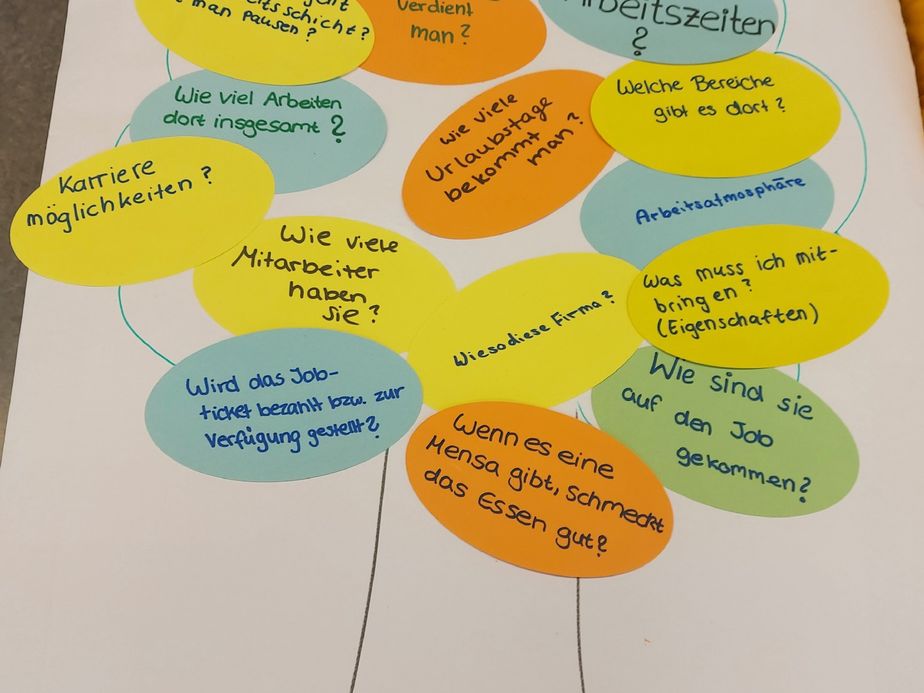 man Pausen?
verdient
man?
Arbeitszeiten
?
Wie viel Arbeiten
dort insgesamt?
Wie viele
Urlaubstage
bekommt
man?
Welche Bereiche
gibt es dort?
Karriere
möglichkeiten?
Arbeitsatmosphäre
Wie viele
Mitarbeiter
haben
sie?
Wieso diese Firma?
Was muss ich mit-
bringen?
(Eigenschaften)
Wird das Job-
ticket bezahlt bzw. zur
Verfügung gestellt?
Wenn es eine
Mensa gibt, schmeckt
das Essen gut?
Wie sind sie
auf den Job
gekommen?